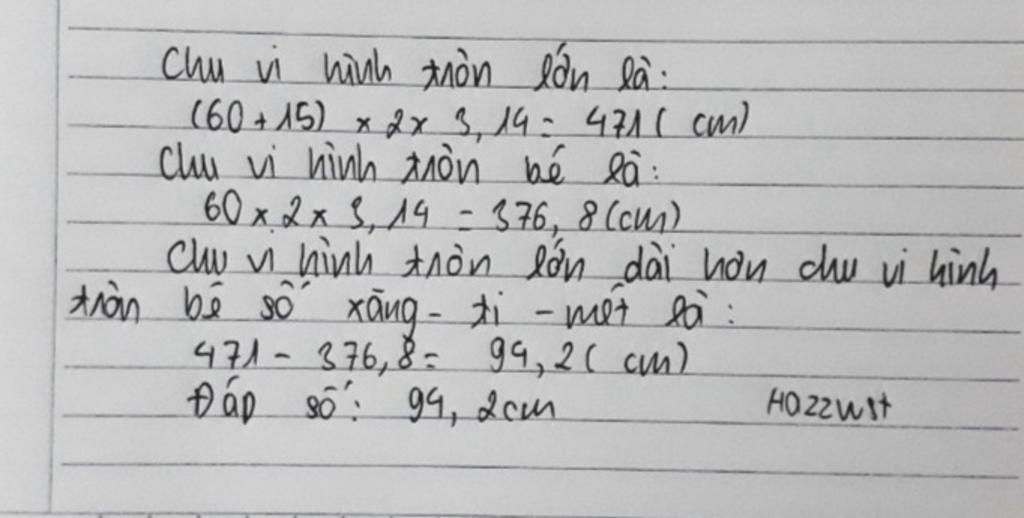 Chu vi hình tròn lớn là:
(60 + 15) × 2 × 3,14 = 471 ( cm)
Chu vi hình tròn bé là:
60 × 2 × 3,14 = 376,8 (cm)
Chu vi hình tròn lớn dài hơn chu vi hình
tròn bé số xăng - ti - mét là:
471 - 376,8 = 94,2 ( cm)
Đáp số: 94,2cm